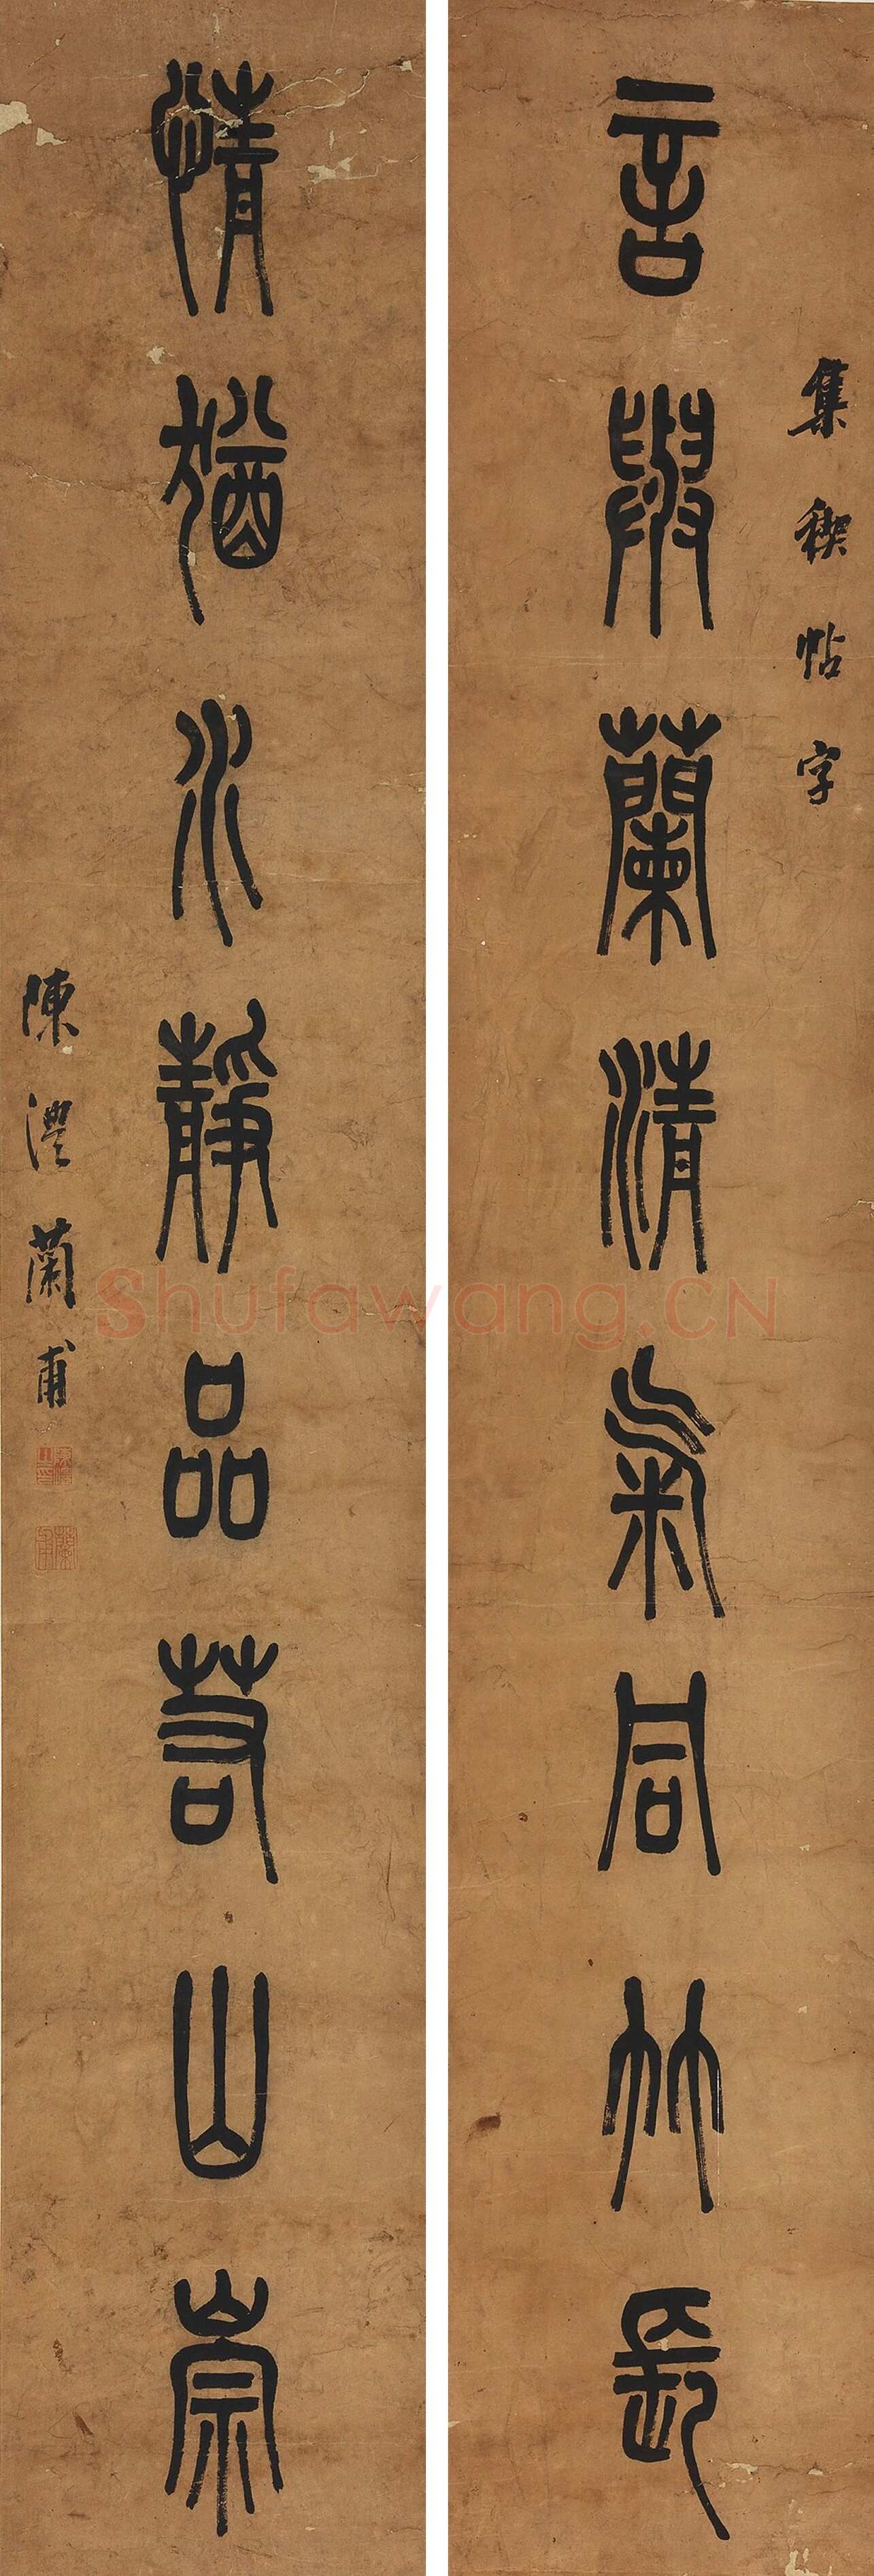 集禊帖字
言與蘭清氣同竹長
情猶水靜品若山崇
陳澧蘭甫
Shufawang.CN